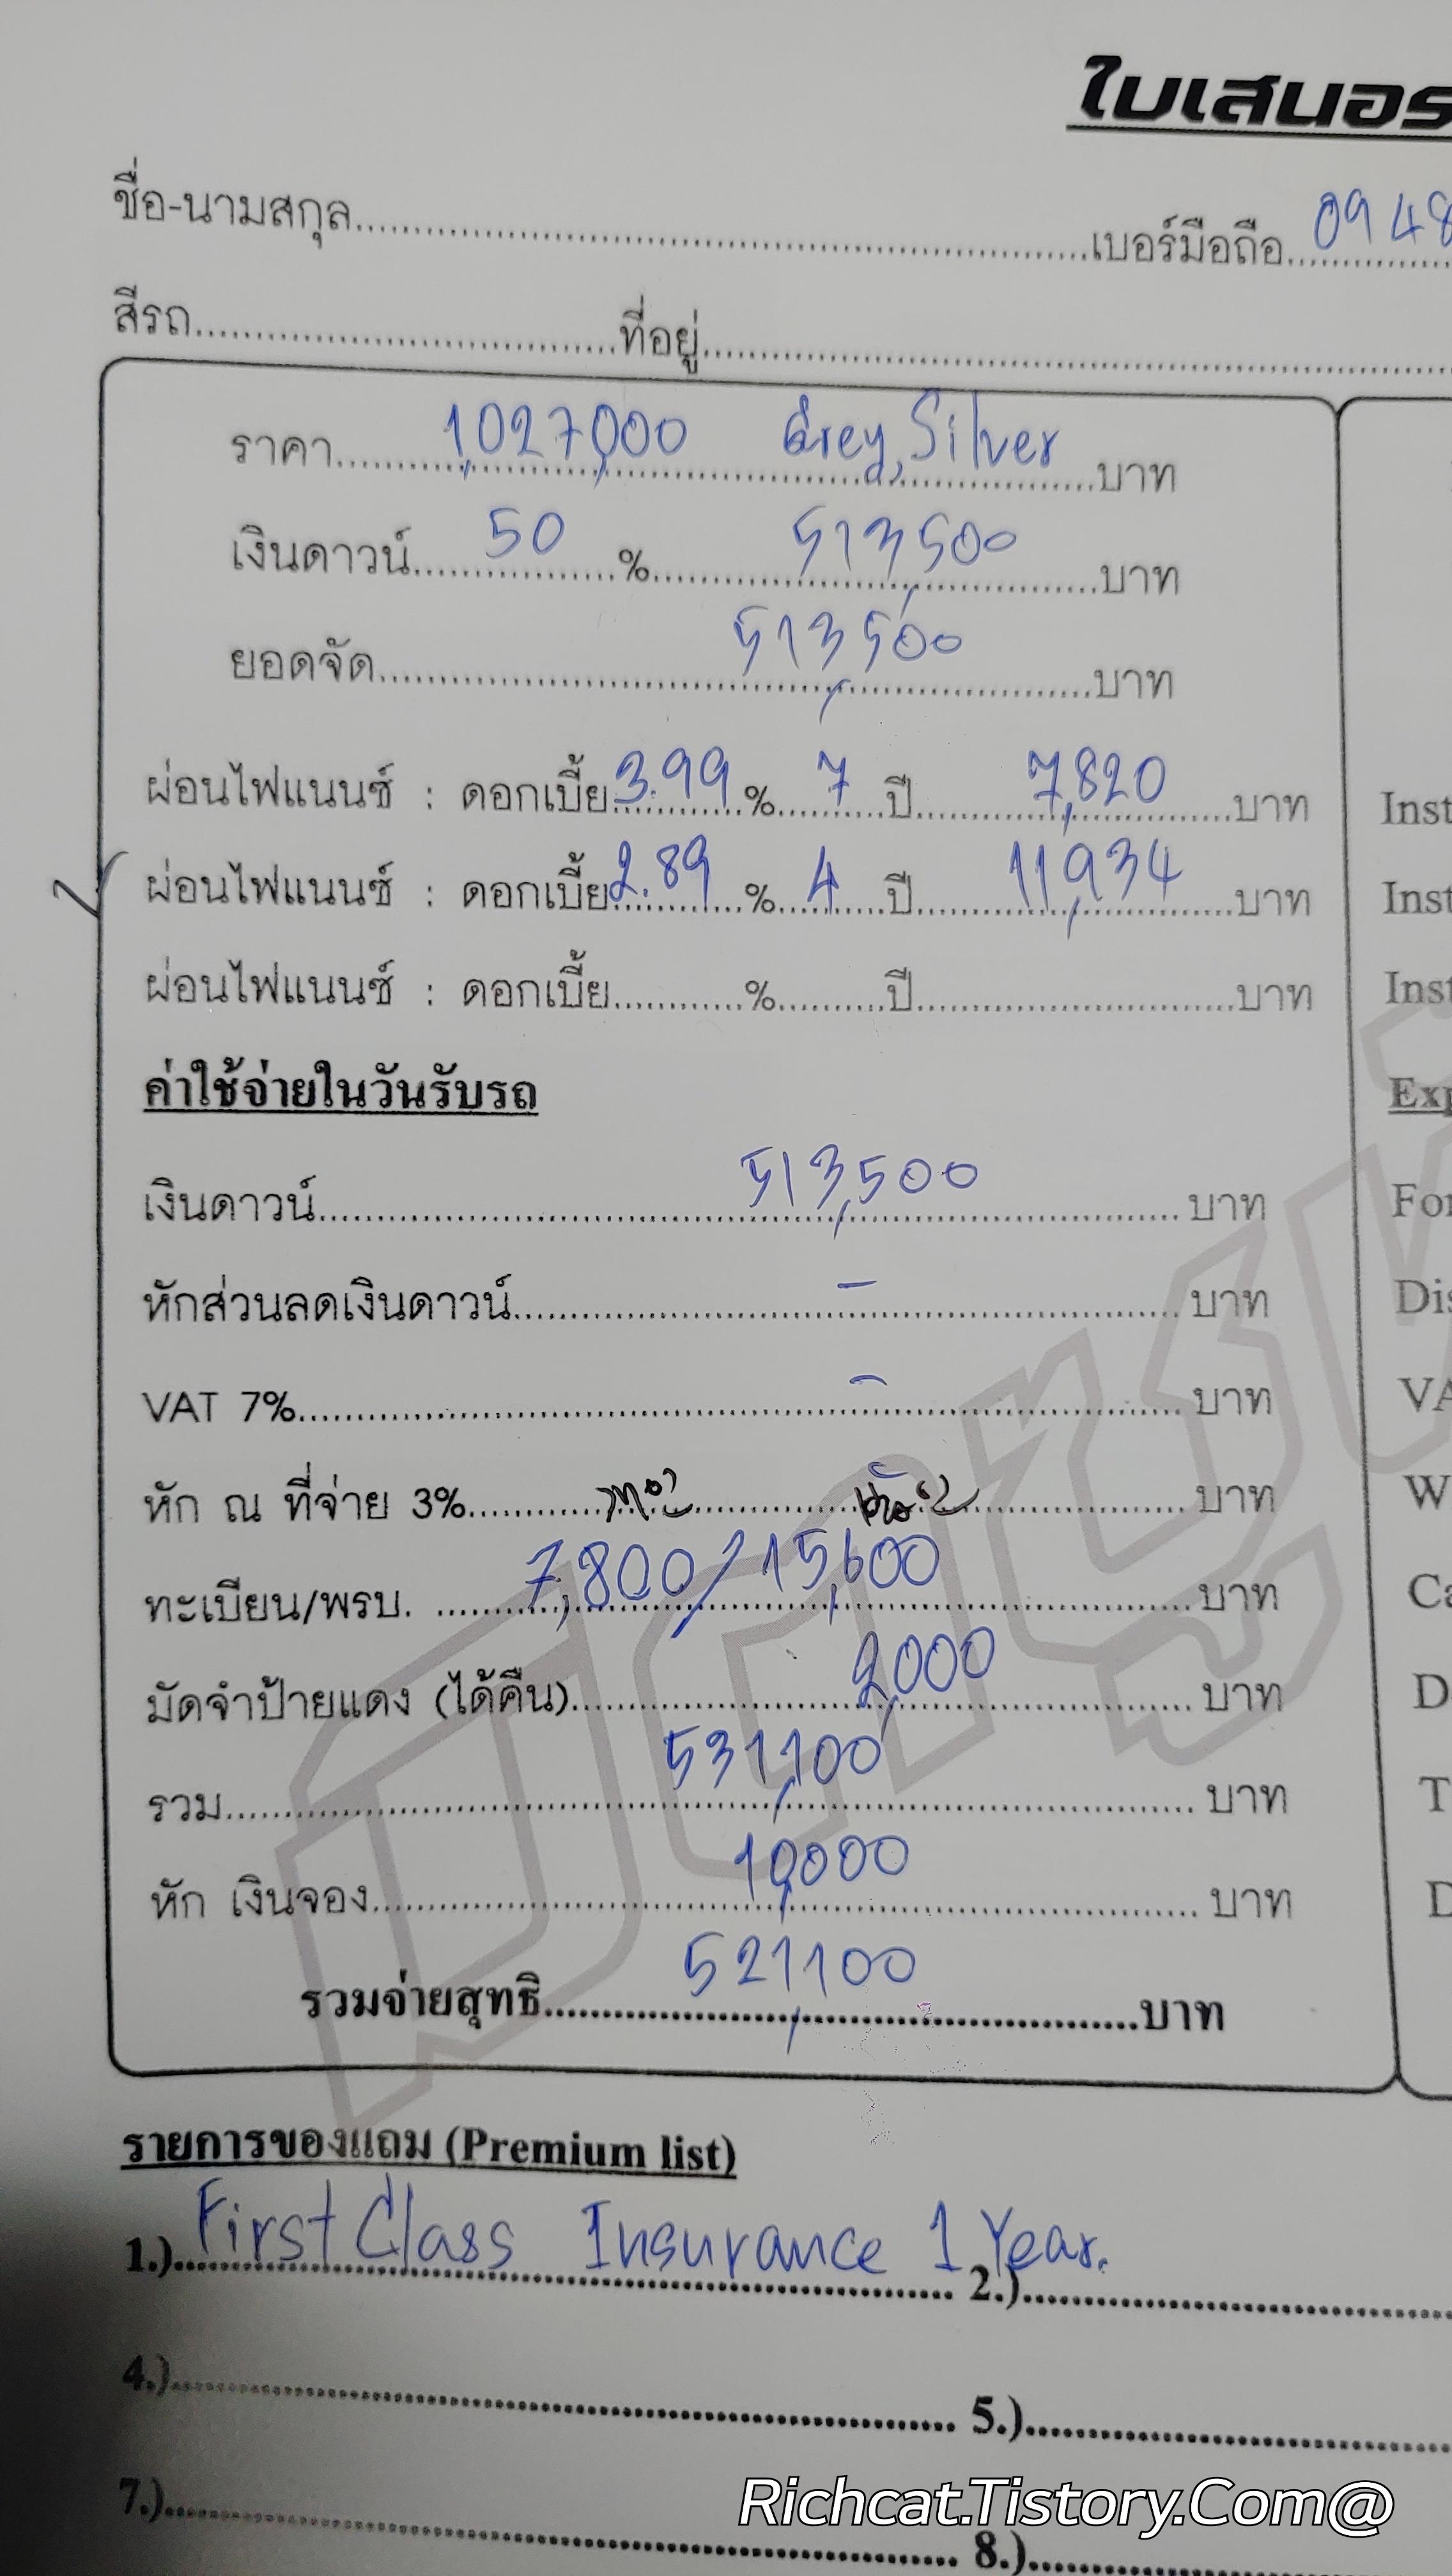 ใบเสนอร
ชื่อ-นามสกุล....................เบอร์มือถือ 0948
สีรถ....................ที่อยู่....................
ราคา 1,027,000 Grey, Silver บาท
เงินดาวน์ 50 % 513,500 บาท
ยอดจัด 513,500 บาท
ผ่อนไฟแนนซ์ : ดอกเบี้ย 3.99 % 7 ปี 7,820 บาท
Inst
ผ่อนไฟแนนซ์ : ดอกเบี้ย 2.89 % 4 ปี 11,934 บาท
Inst
ผ่อนไฟแนนซ์ : ดอกเบี้ย..........%..........ปี....................บาท
Inst
ค่าใช้จ่ายในวันรับรถ
Exp
เงินดาวน์ 513,500 บาท
For
หักส่วนลดเงินดาวน์ - บาท
Dis
VAT 7% - บาท
VA
หัก ณ ที่จ่าย 3%....................บาท
W
ทะเบียน/พรบ. 7,800/15,600 บาท
Ca
มัดจำป้ายแดง (ได้คืน) 2,000 บาท
D
รวม 531,100 บาท
T
หัก เงินจอง 10,000 บาท
D
รวมจ่ายสุทธิ 521,100 บาท
รายการของแถม (Premium list)
1.) First Class Insurance 1 Year. 2.)
4.).................... 5.)....................
7.).................... 8.)....................
Richcat.Tistory.Com@